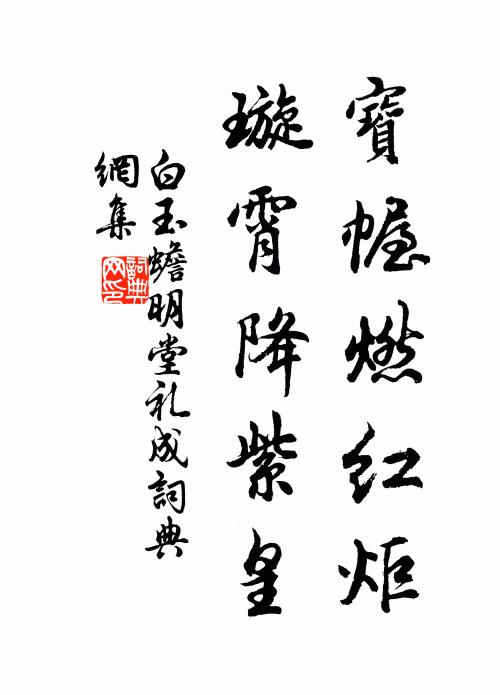 寶幄燃紅炬
璇霄降紫皇
白玉蟾明堂礼成詞典
網集
詞典网印